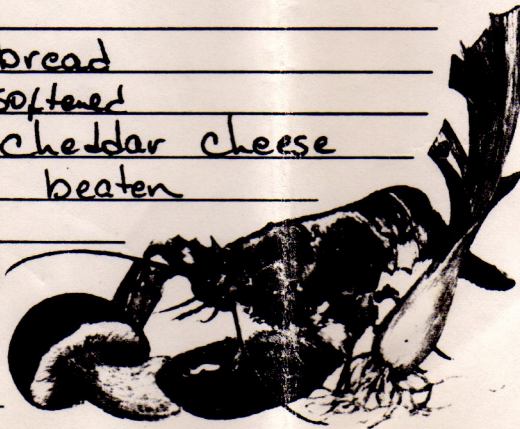 bread
softened
cheddar cheese
beaten